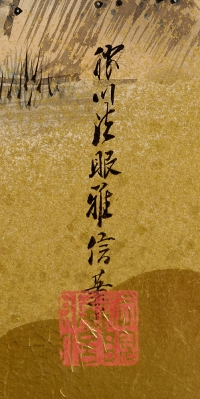 勝川法眼雅信筆